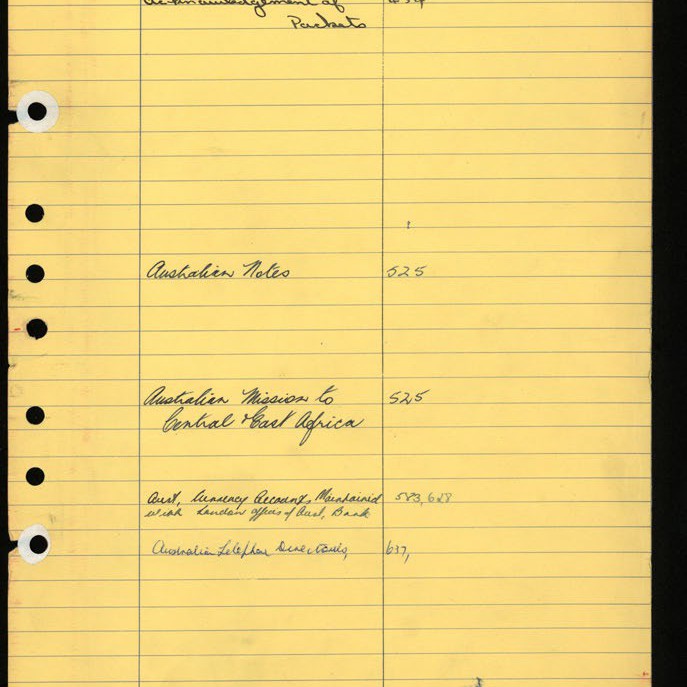 Acknowledgement of 434
Packets
Australian Notes 525
Australian Mission to 525
Central & East Africa
Aust. Currency Accounts Maintained 583, 628
with London offices of Aust. Bank
Australian Telephone Directories, 637,